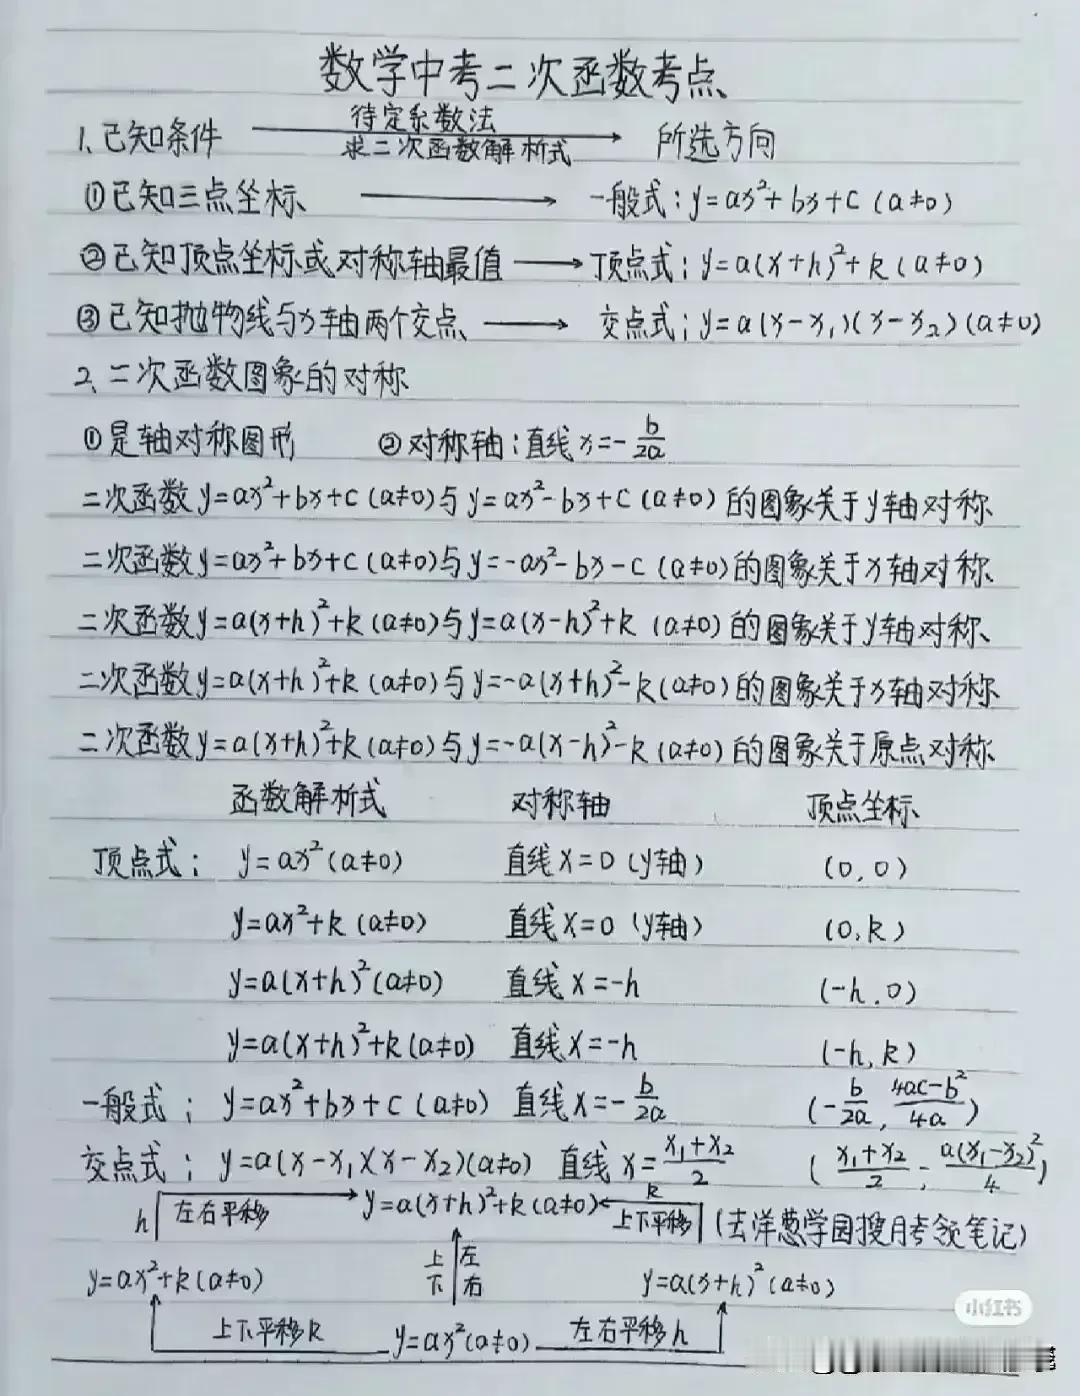 数学中考二次函数考点
1、已知条件 待定系数法 求二次函数解析式 所选方向
①已知三点坐标 一般式：y=ax²+bx+c (a≠0)
②已知顶点坐标或对称轴最值 顶点式：y=a(x+h)²+k (a≠0)
③已知抛物线与x轴两个交点 交点式：y=a(x-x₁)(x-x₂)(a≠0)
2、二次函数图象的对称
①是轴对称图形 ②对称轴：直线x=-b/2a
二次函数y=ax²+bx+c (a≠0)与y=ax²-bx+c (a≠0)的图象关于y轴对称
二次函数y=ax²+bx+c (a≠0)与y=-ax²-bx-c (a≠0)的图象关于x轴对称
二次函数y=a(x+h)²+k (a≠0)与y=a(x-h)²+k (a≠0)的图象关于y轴对称
二次函数y=a(x+h)²+k (a≠0)与y=-a(x+h)²-k(a≠0)的图象关于x轴对称
二次函数y=a(x+h)²+k(a≠0)与y=-a(x-h)²-k (a≠0)的图象关于原点对称
函数解析式 对称轴 顶点坐标
顶点式： y=ax²(a≠0) 直线x=0 (y轴) (0,0)
y=ax²+k (a≠0) 直线x=0 (y轴) (0,k)
y=a(x+h)²(a≠0) 直线x=-h (-h,0)
y=a(x+h)²+k(a≠0) 直线x=-h (-h,k)
一般式： y=ax²+bx+c (a≠0) 直线x=-b/2a (-b/2a, 4ac-b²/4a)
交点式： y=a(x-x₁)(x-x₂)(a≠0) 直线x=x₁+x₂/2 (x₁+x₂/2, a(x₁-x₂)²/4)
h 左右平移 y=a(x+h)²+k(a≠0) k 上下平移 (去洋葱学园搜月考领笔记)
y=ax²+k(a≠0) 上下 左右 y=a(x+h)²(a≠0)
上下平移k y=ax²(a≠0) 左右平移h
小红书